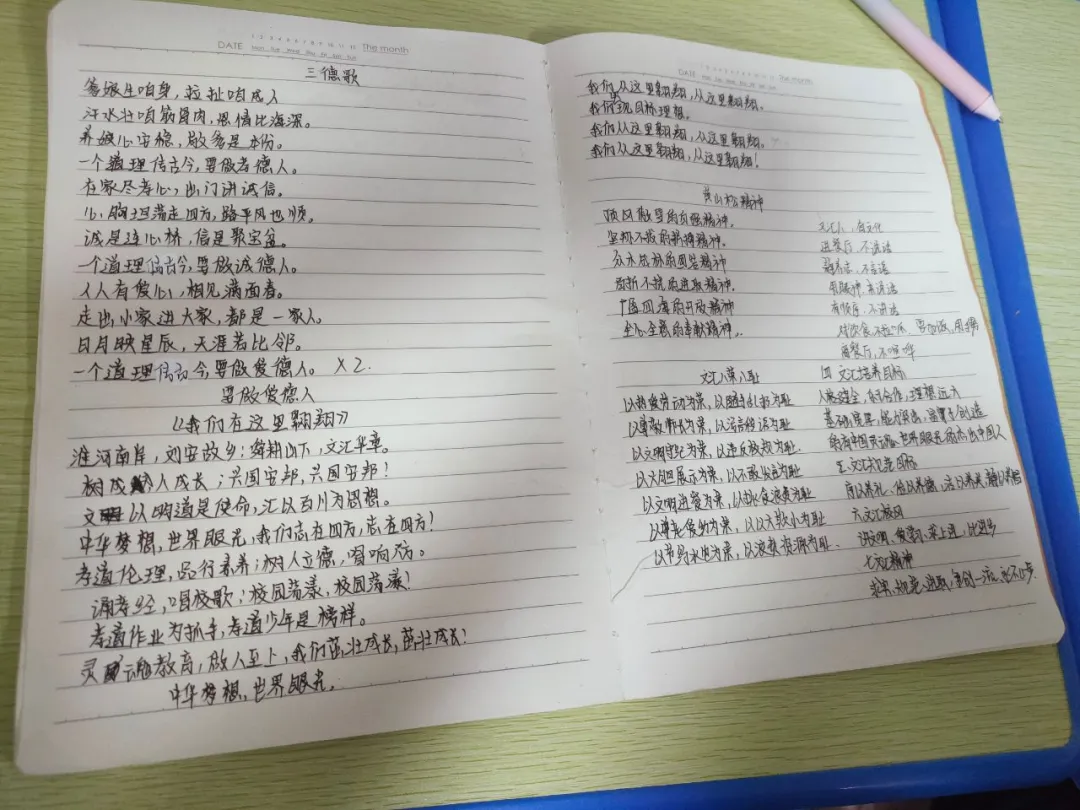 DATE
The month
三德歌
爹娘生咱身，拉扯咱成人
汗水壮咱筋骨肉，恩情比海深。
养娘心安稳，敬孝是本份。
一个道理传古今，要做孝德人。
在家尽孝心，出门讲诚信。
心胸坦荡走四方，路平风也顺。
诚是连心桥，信是聚宝盆。
一个道理传古今，要做诚德人。
人人有爱心，相见满面春。
走出小家进大家，都是一家人。
日月映星辰，天涯若比邻。
一个道理传古今，要做爱德人。 X2.
要做爱德人
《我们在这里翱翔》
淮河南岸，刘安故乡；舜耕山下，文汇华章。
树成人成长；兴国安邦，兴国安邦！
以明道是使命，汇以百川为思想。
中华梦想，世界眼光，我们志在四方，志在四方！
孝道伦理，品行素养；树人立德，唱响
诵孝经，唱校歌；校园荡漾，校园荡漾！
孝道作业为抓手，孝道少年是榜样。
灵魂教育，做人至上，我们茁壮成长，茁壮成长！
中华梦想，世界眼光，
DATE
The month
我们从这里翱翔，从这里翱翔。
我们实现目标理想。
我们从这里翱翔，从这里翱翔。
我们从这里翱翔，从这里翱翔！
黄山松精神
顶风傲雪的自强精神。
坚韧不拔的拼搏精神。
众木成林的团结精神
百折不挠的进取精神。
广迎四海的开放精神
全心全意的奉献精神。
文汇人，食文化
进餐厅，不讲话
有顺序，不讲话
离餐厅，不喧哗
文汇八荣八耻
以热爱劳动为荣，以随手乱扔为耻
以尊敬师长为荣，以污言秽语为耻
以文明守纪为荣，以违反校规为耻。
以大胆展示为荣，以不敢发言为耻
以文明进餐为荣，以挑食浪费为耻
以尊长爱幼为荣，以以大欺小为耻
以节约水电为荣，以浪费资源为耻.
四 文汇培养目标
人格健全，合作，理想远大
基础，能力突出，富于创造
五.文汇 目标
六文汇校风
讲文明，爱学习，求上进，比进步
七文汇精神
求实、规范、进取，争创一流，永不止步.